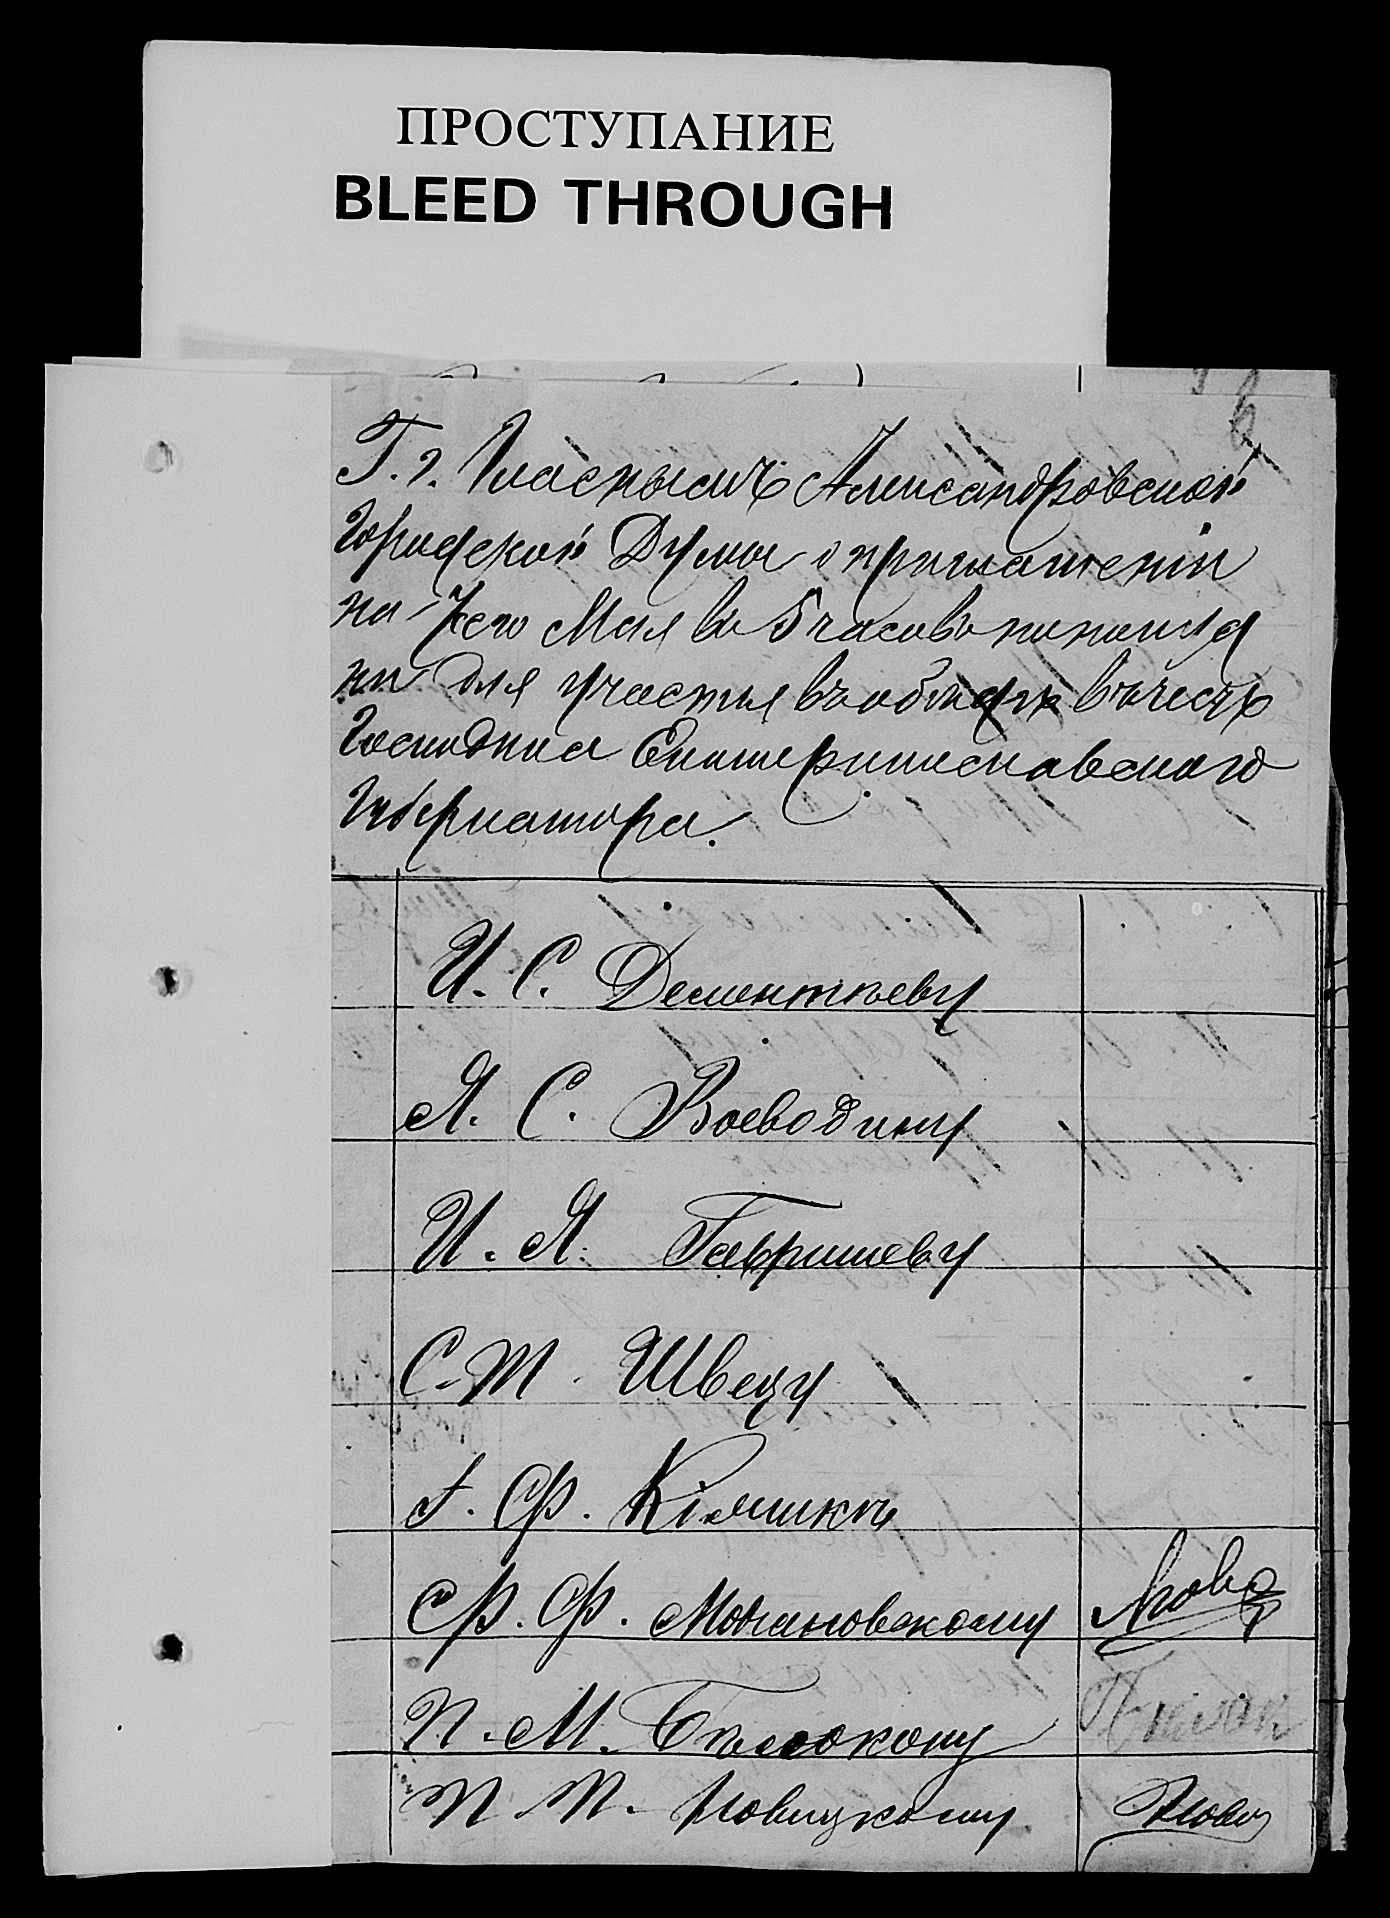 ПРОСТУПАНИЕ
BLEED THROUGH
6
Г.г. Гласнымъ Александровской
Городской Думы о приглашеніи
на 7ого Мая въ 5 часовъ пополуд
ни для участія въ обѣдѣ въ честь
Господина Екатеринославского
Губернатора.
И. С. Дементьеву
Я. С. Воеводину
И. Я. Гавришеву
С. Т. Швецу
Ф.
Ф. Ф. Мочановскому
П. М.
П. П. Новицкому
Нови